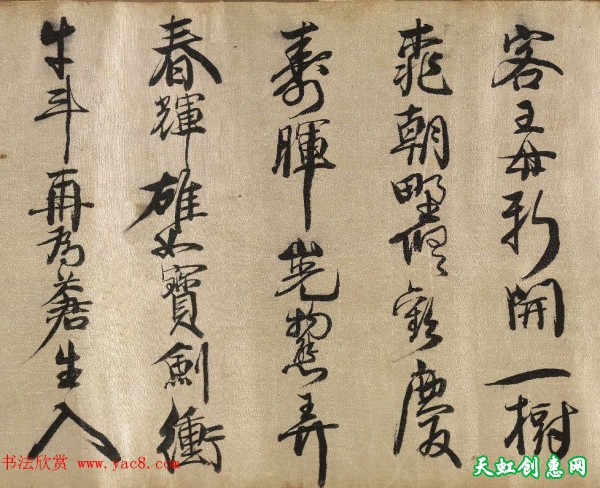 客王母新開一樹
桃朝野歡慶
壽暉山光物態弄
春輝雄如寶劍衝
牛斗再為蒼生入
书法欣赏 www.yac8.com
天虹创惠网